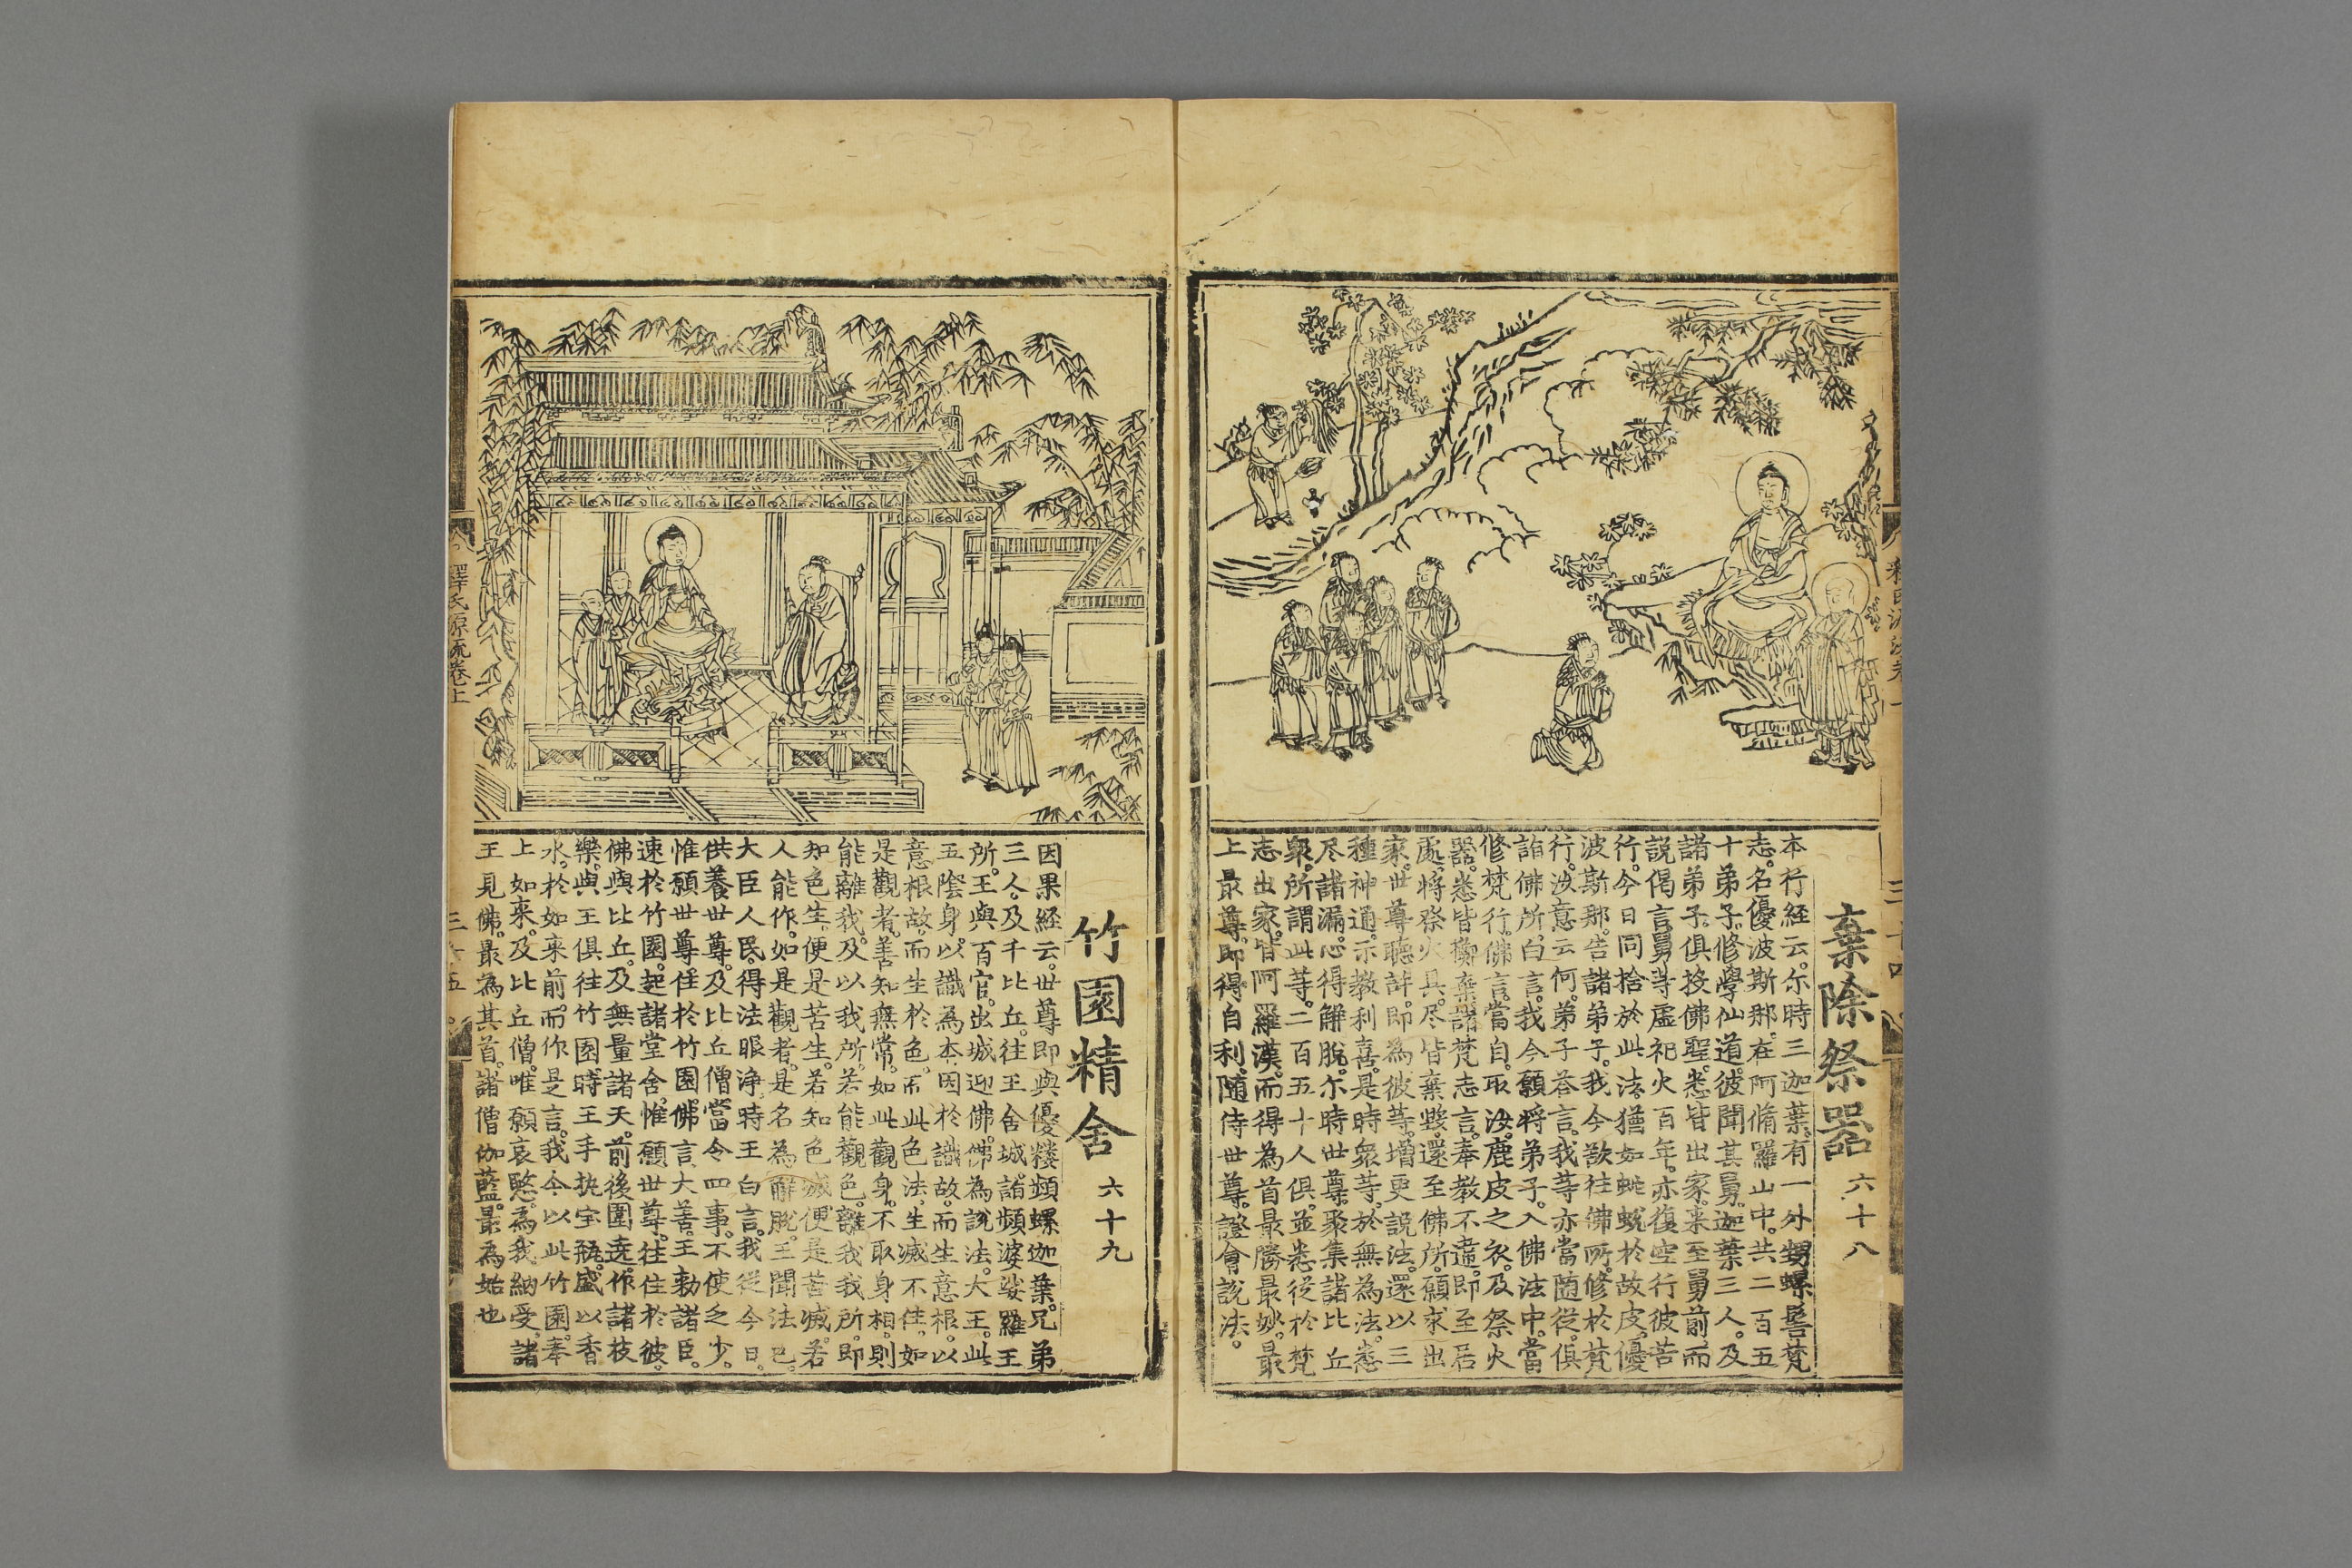 棄除祭器 六十八
本行経云。尒時三迦葉。有一外甥螺髻梵
志。名優波斯那。在阿脩羅山中。共二百五
十弟子。修學仙道。彼聞其舅。迦葉三人。及
諸弟子。俱投佛聖。悉皆出家。来至舅前。而
説偈言。舅等虛祀火百年。亦復空行彼苦
行。今日同捨於此法。猶如蛇蛻於故皮。優
波斯那。告諸弟子。我今欲往佛所。修於梵
行。汝意云何。弟子荅言。我等亦當随從。俱
詣佛所。白言。我今願將弟子。入佛法中。當
修梵行。佛言。當自取汝。鹿皮之衣。及祭火
器。悉皆擲棄。諸梵志言。奉教不違。即至居
處。將祭火具。尽皆棄擲。還至佛所。願求出
家。世尊聽許。即為彼等。増更説法。還以三
種神通。示教利喜。是時衆等。於無為法。悉
尽諸漏。心得解脫。尒時世尊。聚集諸比丘
衆。所謂此等。二百五十人俱。並悉從於梵
志出家。皆阿羅漢。而得為首。最勝最妙。最
上最尊。即得自利。随侍世尊。證會説法。
竹園精舍 六十九
因果経云。世尊即與優樓頻螺迦葉。兄弟
三人。及千比丘。往王舍城。詣頻婆娑羅王
所。王與百官。出城迎佛。佛為說法。大王。此
五陰身。以識為本。因於識故。而生意根。以
意根故。而生於色。而此色法。生滅不住。如
是觀者。善知無常。如此觀身。不取身相。則
能離我。及以我所。若能觀色。離我我所。即
知色生。便是苦生。若知色滅。便是苦滅。若
人能作。如是觀者。是名為解脫。王聞法已。
大臣人民。得法眼浄。時王白言。我從今日。
供養世尊。及比丘僧。當令四事。不使乏少。
惟願世尊。住於竹園。佛言大善。王勑諸臣。
速於竹園。起諸堂舍。惟願世尊。往住於彼。
佛與比丘。及無量諸天。前後圍遶。作諸枝
樂。與王俱往竹園。時王手执宝瓶。盛以香
水。於如来前。而作是言。我今以此竹園。奉
上如来。及比丘僧。唯願哀愍。為我納受。諸
王見佛。最為其首。諸僧伽藍。最為始也
釋氏源流卷上